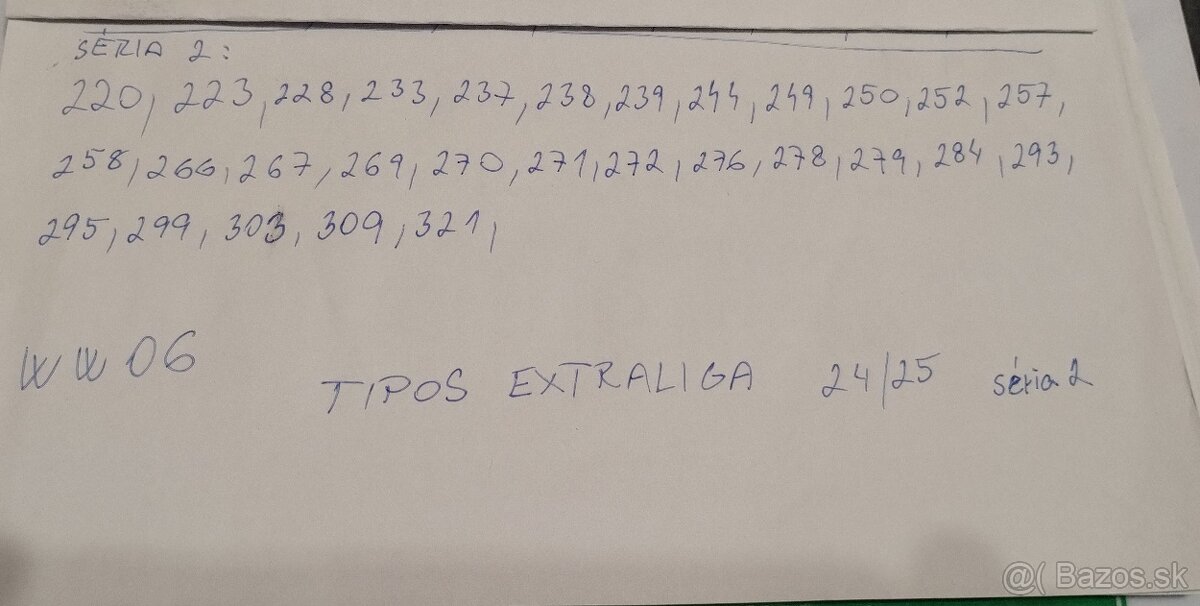 SÉRIA 2:
220, 223, 228, 233, 237, 238, 239, 244, 249, 250, 252, 257,
258, 266, 267, 269, 270, 271, 272, 276, 278, 279, 284, 293,
295, 299, 303, 309, 321,
WW06
TIPOS EXTRALIGA 24/25 séria 2
@( Bazos.sk